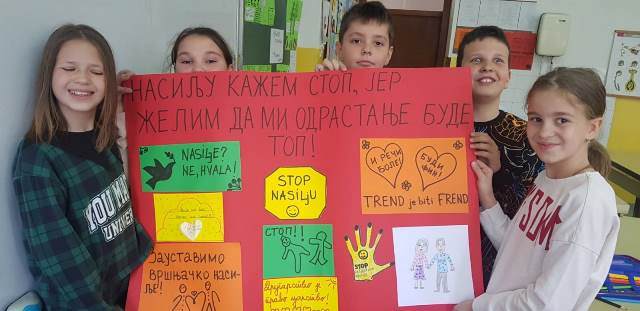 НАСИЉУ КАЖЕМ СТОП, ЈЕР
ЖЕЛИМ ДА МИ ОДРАСТАЊЕ БУДЕ
ТОП!
NASIĻE?
NE, HVALA!
STOP
NASIĻU
И РЕЧИ
БОЛЕ!
БУДИ
ФИН!
TREND je biti FREND
СТОП!!
STOP
Зауставимо
вршњачко наси-
ље!
Другарство је
право царство!
YOU
UNIVER